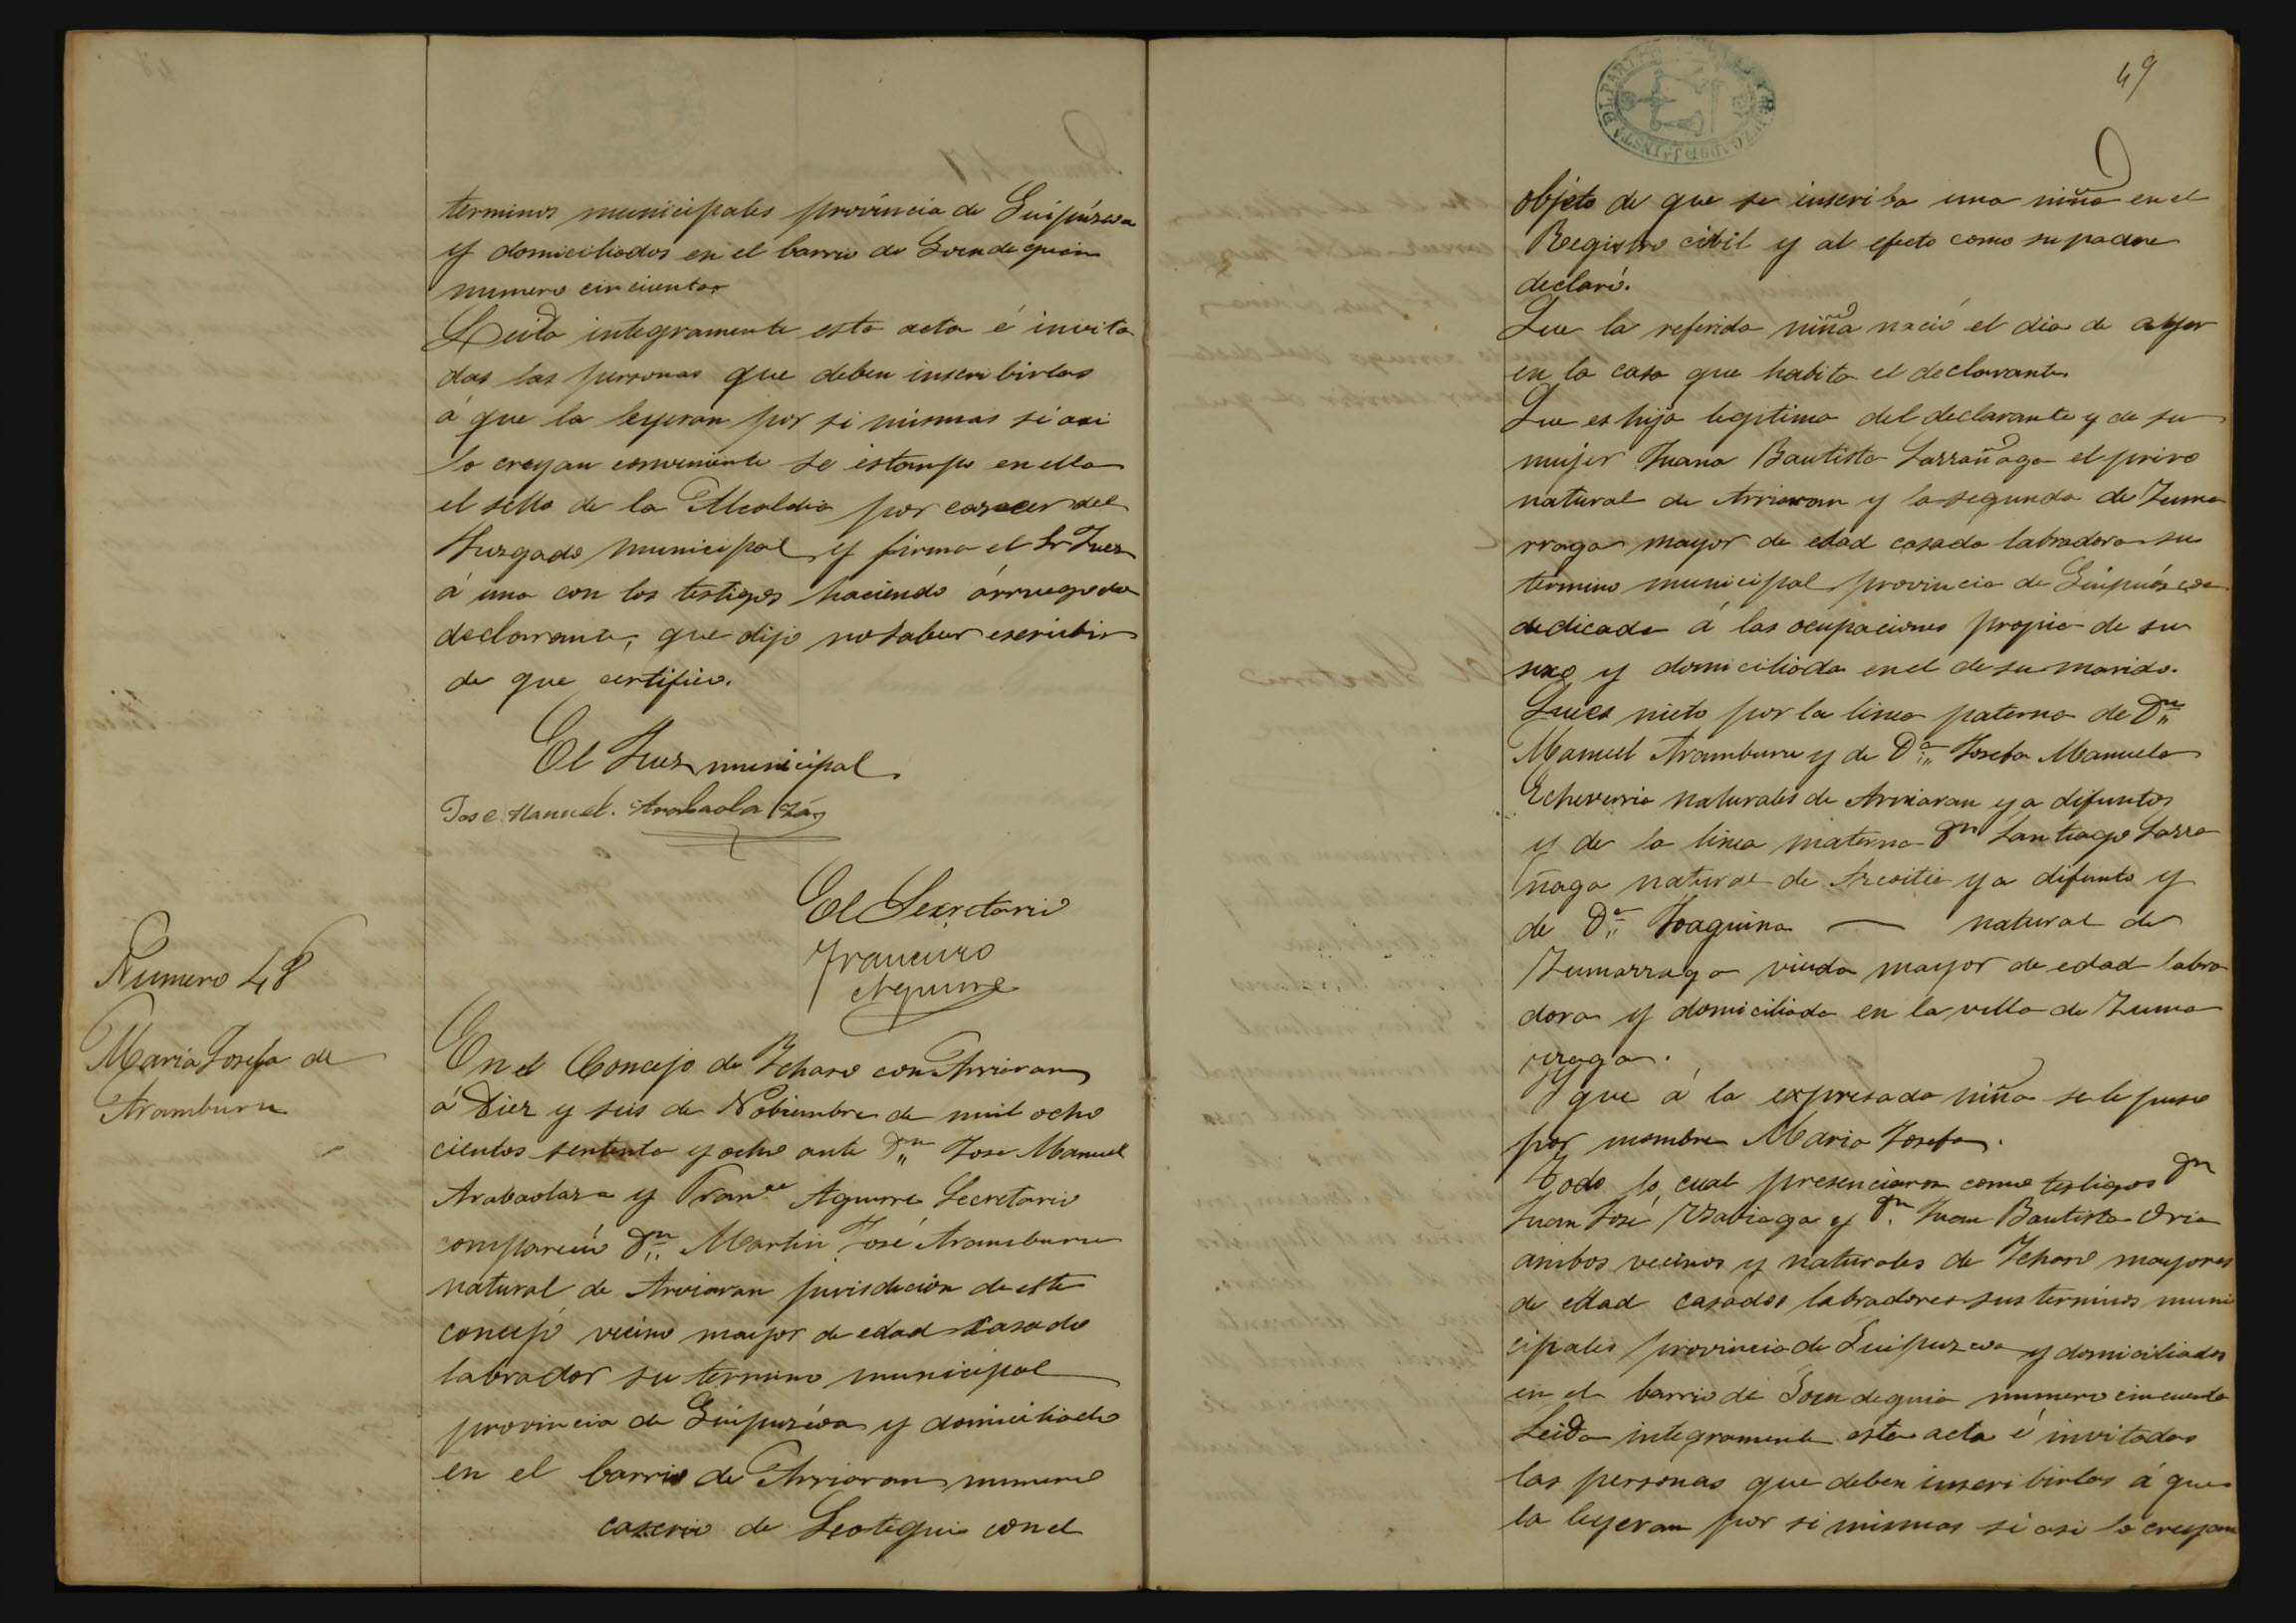 terminos municipales provincia de Guipúzcoa
y domiciliados en el barrio de Goendeguia
numero cincuenta
Leida integramente esta acta é invita
das las personas que deben inscribirlas
á que la leyeran por si mismas si asi
lo creyan conveniente se estampo en ella
el sello de la Alcaldia por carecer del
Juzgado municipal y firma el Sr Juez
á una con los testigos haciendo árruego del
declarante, que dijo no saber escribir
de que certifico.
El Juez municipal
Jose Manuel. Arabaolaza
El Secretario
Francisco
Aguirre
Numero 48
Maria Josefa de
Aramburu
En el Concejo de Ichaso con Arriaran
á Diez y seis de Nobiembre de mil ocho
cientos setenta y ocho ante Dn Jose Manuel
Arabaolaza y Franco Aguirre Secretario
compareció Dn Martin José Aramburu
natural de Arriaran jurisdición de este
concejo vecino mayor de edad casado
labrador su termino municipal
provincia de Guipuzcoa y domiciliado
en el barrio de Arriaran numero
caserio de Leotegui con el
49
objeto de que se inscriba una niña en el
Registro cibil y al efecto como su padre
declaró.
Que la referida niña nació el dia de ayer
en la casa que habita el declarante.
Que es hija legitima del declarante y de su
mujer Juana Bautista Larrañaga el priro
natural de Arriaran y la segunda de Zuma
rraga mayor de edad casada labradora su
termino municipal provincia de Guipúzcoa
dedicada á las ocupaciones propia de su
sexo y domiciliada en el de su marido.
Que es nieto por la linea paterna de Dn
Manuel Aramburu y de Da Josefa Manuela
Echeverria naturales de Arriaran ya difuntos
y de la linea materna Dn Santiago Larra
ñaga natural de Azcoitia ya difunto y
de Da Joaquina — natural de
Zumarraga viuda mayor de edad labra
dora y domiciliada en la villa de Zuma
rraga.
Y que á la expresada niña se le puso
por nombre Maria Josefa.
Todo lo cual presenciaron como testigos Dn
Juan José y Dn Juan Bautista Oria
ambos vecinos y naturales de Ichaso mayores
de edad casados labradores sus terminos muni
cipales provincia de Guipuzcoa y domiciliados
en el barrio de Goendeguia numero cincuenta
Leida integramente esta acta é invitadas
las personas que deben inscribirlas á que
la leyeran por si mismas si asi lo creyan